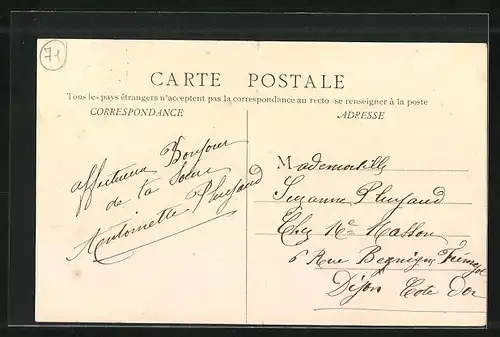 71
CARTE POSTALE
Tous les pays étrangers n'acceptent pas la correspondance au recto (se renseigner à la poste
CORRESPONDANCE
ADRESSE
affectueux Bonjour
de ta Soeur
Antoinette
Mademoiselle
Suzanne
Chez Me Masson
6 Rue Bégnigne Frémyot
Dijon Cote d'or